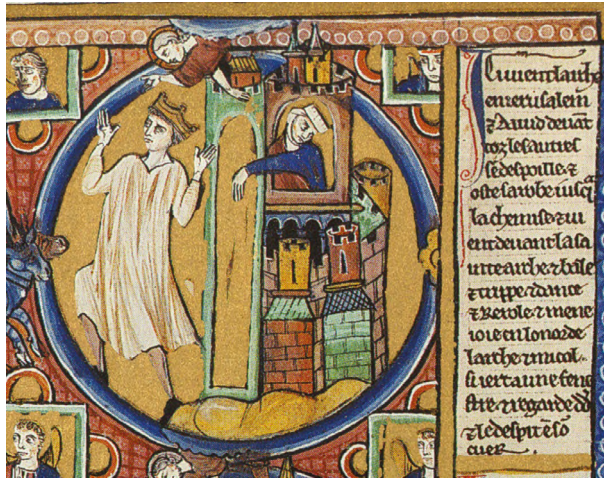 Ici vient larche
en ierusalem
& david devāt
toz les autres
se despoille &
oste sa robe iusqa
la chemise & vi
ent devant la sa
inte arche & bale
& trippe & dance
& kerole & mene
ioie en lonor de
larche & micol
si iert a une fene
stre & regarde dd
& le despit e sō
cuer .